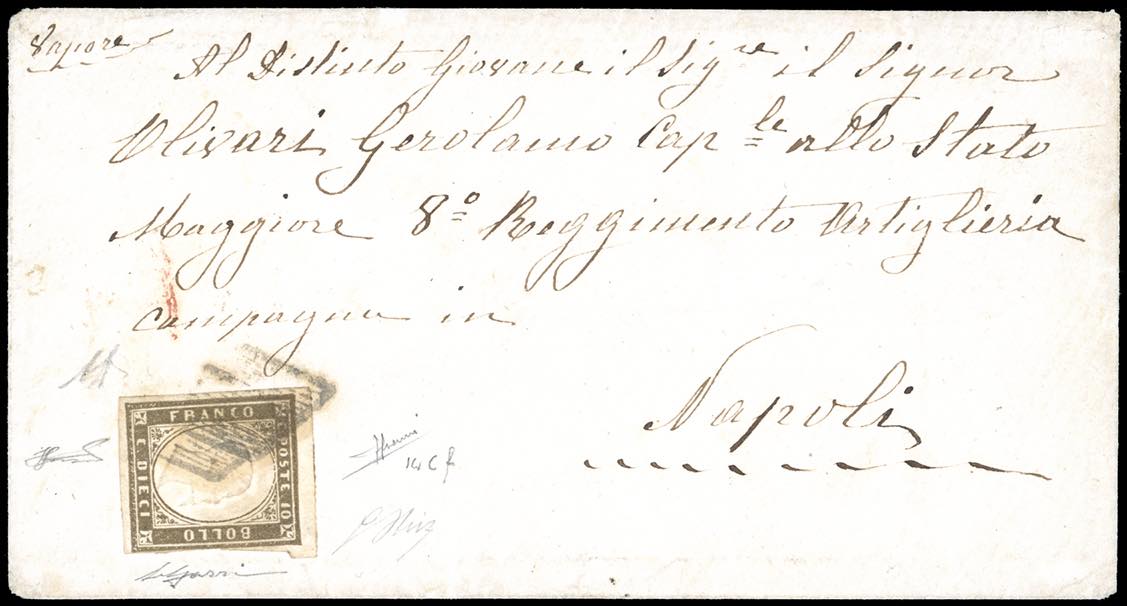 Vapore
Al Distinto Giovane il Sigre il Signor
Olivari Gerolamo Caple allo Stato
Maggiore 8º Reggimento Artiglieria
campagna in
Napoli
FRANCO
POSTE 10
BOLLO
C. DIECI
14 C f